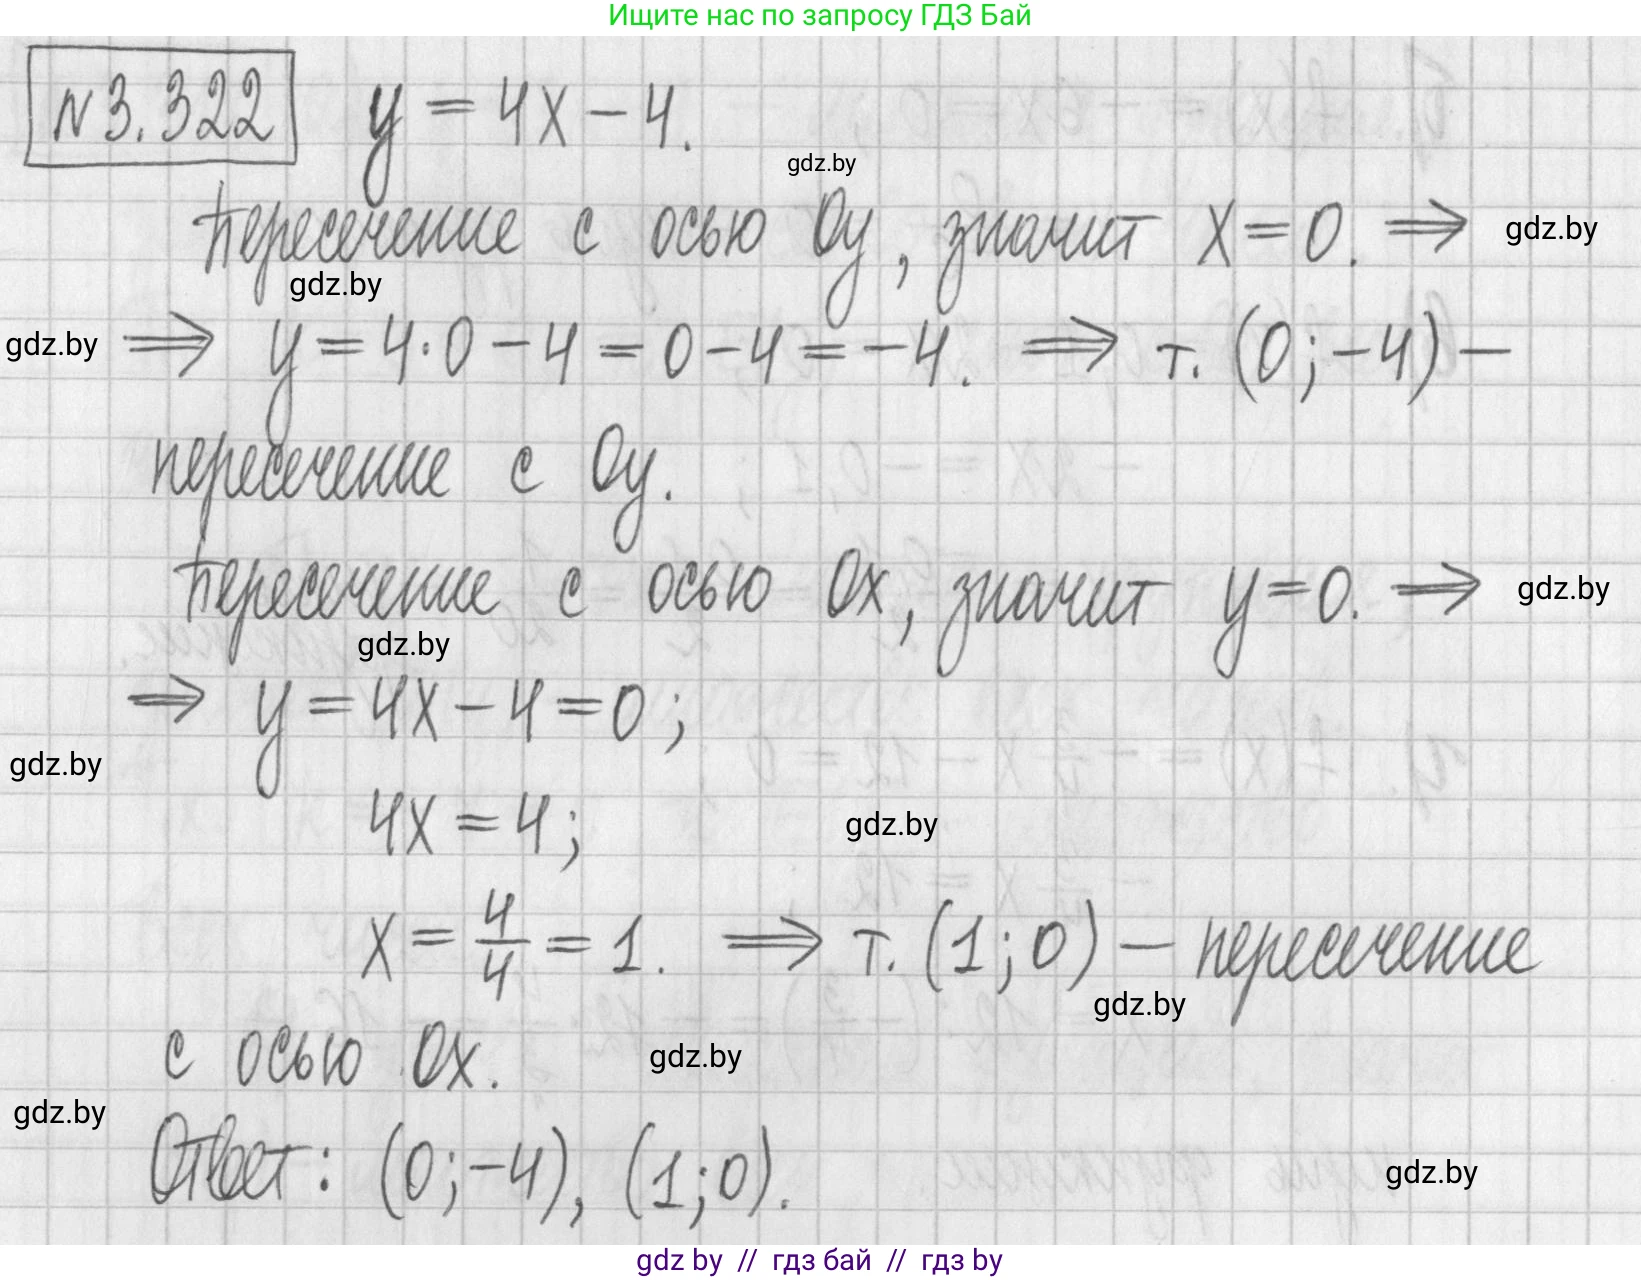 Ищите нас по запросу ГДЗ Бай
N3.322 y = 4x - 4.
gdz.by
Пересечение с осью Oy, значит x = 0. ⇒ gdz.by
gdz.by
gdz.by ⇒ y = 4·0 - 4 = 0 - 4 = -4. ⇒ т. (0; -4) -
пересечение с Oy.
Пересечение с осью Ox, значит y = 0. ⇒ gdz.by
gdz.by
⇒ y = 4x - 4 = 0;
gdz.by
4x = 4;
gdz.by
x = 4/4 = 1. ⇒ т. (1; 0) - пересечение
gdz.by
с осью Ox. gdz.by
gdz.by
Ответ: (0; -4), (1; 0). gdz.by
gdz by // гдз бай // гдз by